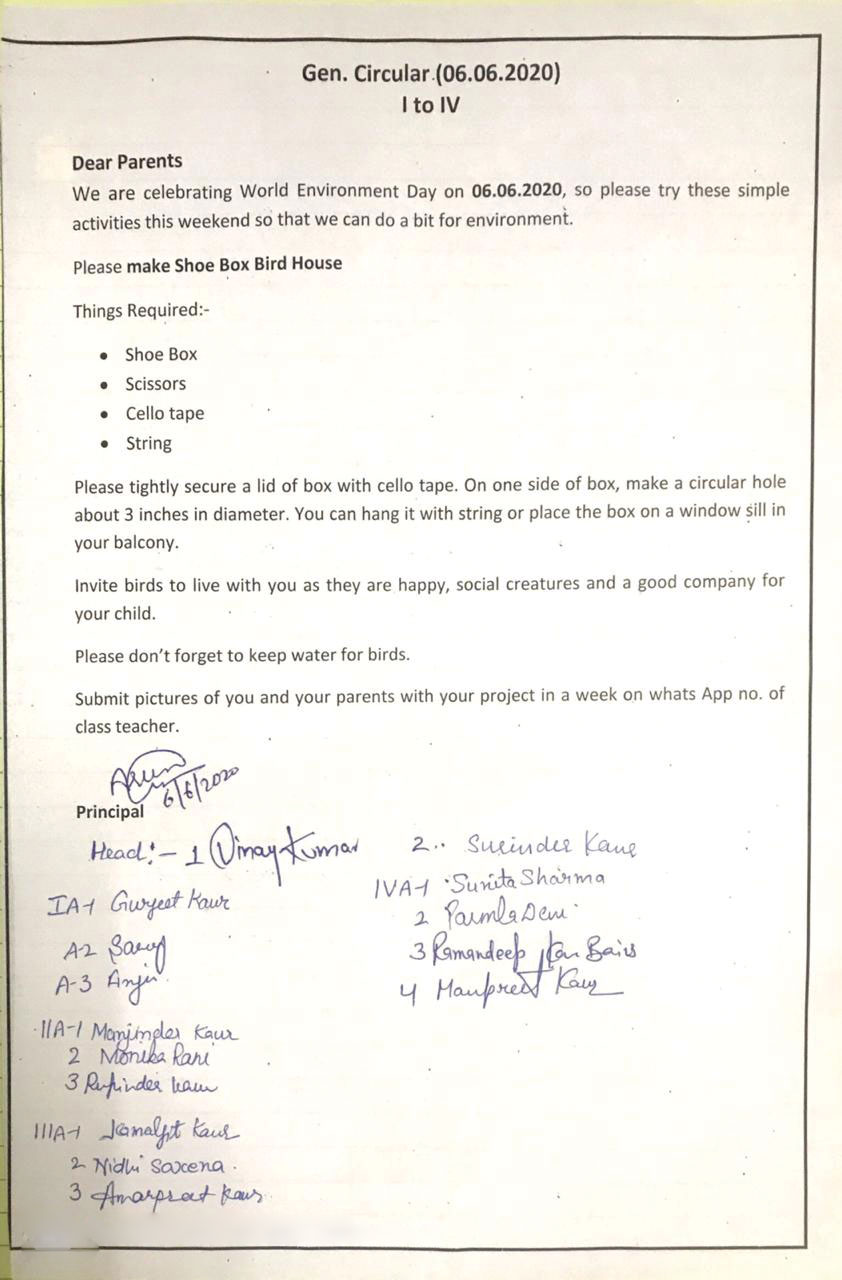 Gen. Circular (06.06.2020)
I to IV
Dear Parents
We are celebrating World Environment Day on 06.06.2020, so please try these simple
activities this weekend so that we can do a bit for environment.
Please make Shoe Box Bird House
Things Required:-
• Shoe Box
• Scissors
• Cello tape
• String
Please tightly secure a lid of box with cello tape. On one side of box, make a circular hole
about 3 inches in diameter. You can hang it with string or place the box on a window sill in
your balcony.
Invite birds to live with you as they are happy, social creatures and a good company for
your child.
Please don't forget to keep water for birds.
Submit pictures of you and your parents with your project in a week on whats App no. of
class teacher.
6/6/2020
Principal
Head:- 1 Vinay Kumar
IA-1 Gurjeet Kaur
A-2 Saroj
A-3 Anju
IIA-1 Manjinder Kaur
2 Monika Rani
3 Rupinder kaur
IIIA-1 Kamaljit Kaur
2 Nidhi Saxena
3 Amarpreet Kaur
2.. Surinder Kaur
IVA-1 Sunita Sharma
2 Parmla Devi
3 Ramandeep Bains
4 Manpreet Kaur